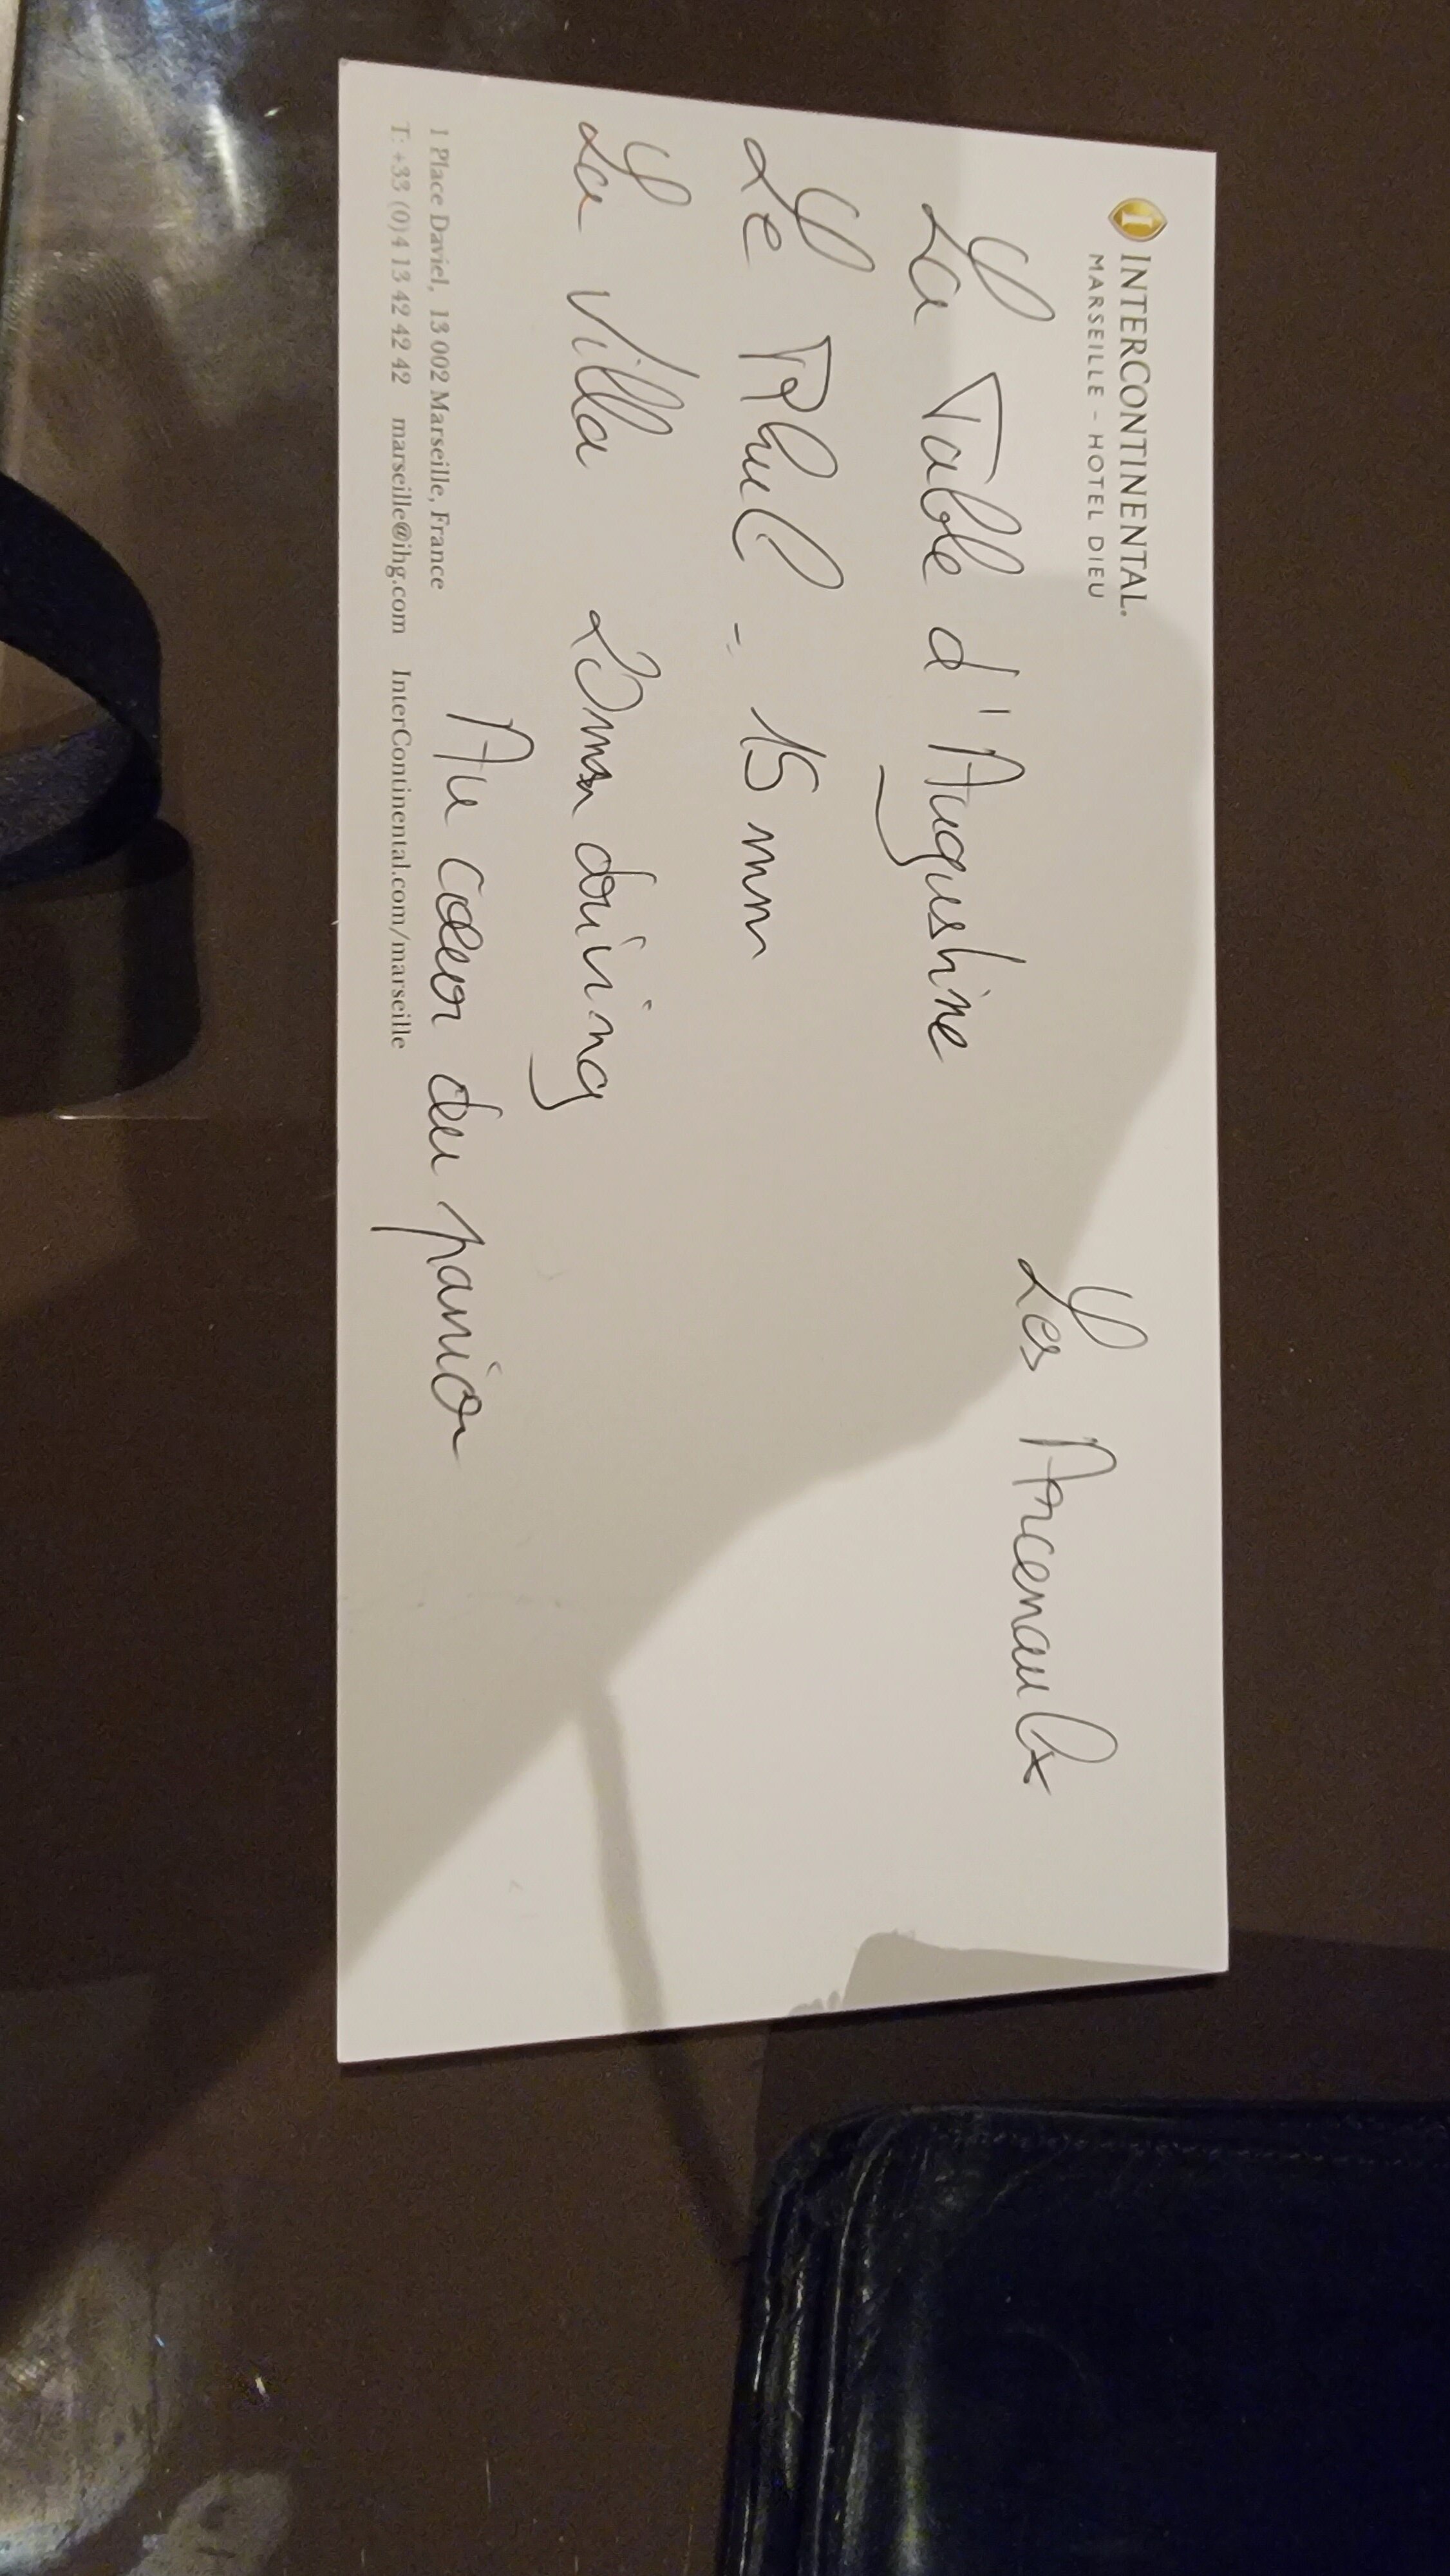 INTERCONTINENTAL.
MARSEILLE - HOTEL DIEU
Les Arcenaulx
La Table d'Augustine
Le Rhul - 15 min
La Villa 20min driving
Au cœur du panier
1 Place Daviel, 13 002 Marseille, France
T: +33 (0)4 13 42 42 42 marseille@ihg.com InterContinental.com/marseille